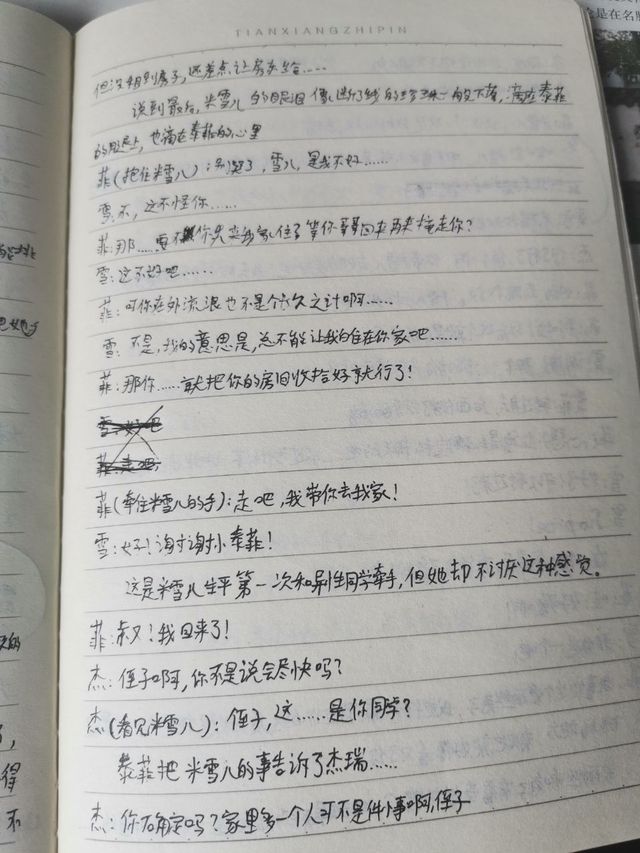 TIANXIANGZHIPIN
会是在名
但没租到房子,还差点让房东给……
说到最后,米雪儿的眼泪像断了线的珍珠一般下落,滴在泰菲
的脸上,也滴在泰菲的心里
菲(抱住米雪儿):别哭了,雪儿,是我不好……
雪:不,这不怪你……
菲:那……要不你先来我家住了等你哥哥回来再来接走你?
雪:这不好吧……
菲:可你在外流浪也不是个永久之计啊……
雪:不是,我的意思是,总不能让我白住在你家吧……
菲:那你……就把你的房间收拾好就行了!
雪:好吧
菲:走吧
菲(牵住米雪儿的手):走吧,我带你去我家!
雪:好!谢谢小泰菲!
这是米雪儿生平第一次和异性同学牵手,但她却不讨厌这种感觉。
菲:叔!我回来了!
杰:侄子啊,你不是说会尽快吗?
杰(看见米雪儿):侄子,这……是你同学?
泰菲把米雪儿的事告诉了杰瑞……
杰:你确定吗?家里多一个人可不是件小事啊,侄子
得
不